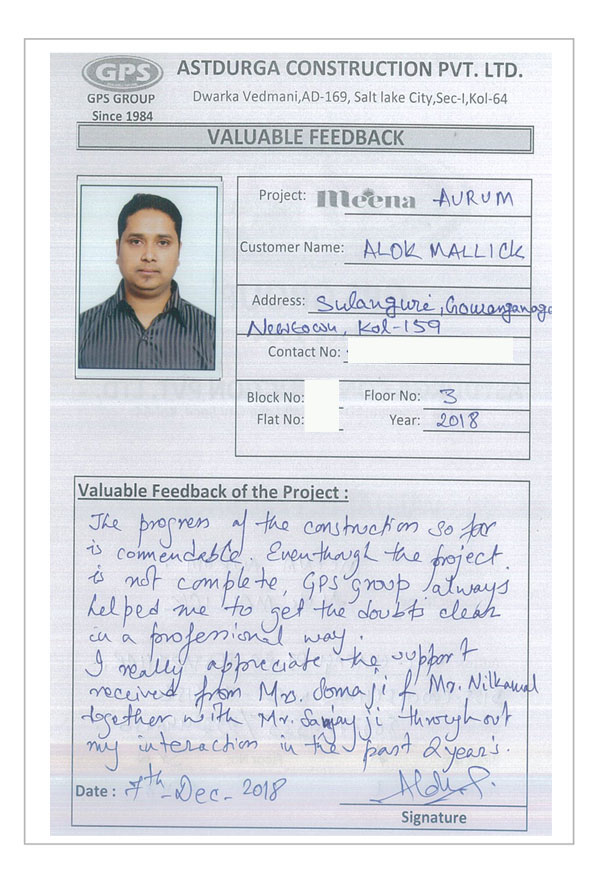 GPS
GPS GROUP
Since 1984
ASTDURGA CONSTRUCTION PVT. LTD.
Dwarka Vedmani,AD-169, Salt lake City,Sec-I,Kol-64
VALUABLE FEEDBACK
Project: meena AURUM
Customer Name: ALOK MALLICK
Address: Sulanguri, Gouranganaga
Newtown, Kol-159
Contact No:
Block No: Floor No: 3
Flat No: Year: 2018
Valuable Feedback of the Project :
The progress of the construction so far
is commendable. Eventhough the project
is not complete, GPS group always
helped me to get the doubts clear
in a professional way.
I really appreciate the support
received from Mrs. Somaji & Mr. Nilkamal
together with Mr. Sanjay ji throughout
my interaction in the past 2 year's.
Date : 7th - Dec - 2018
Signature